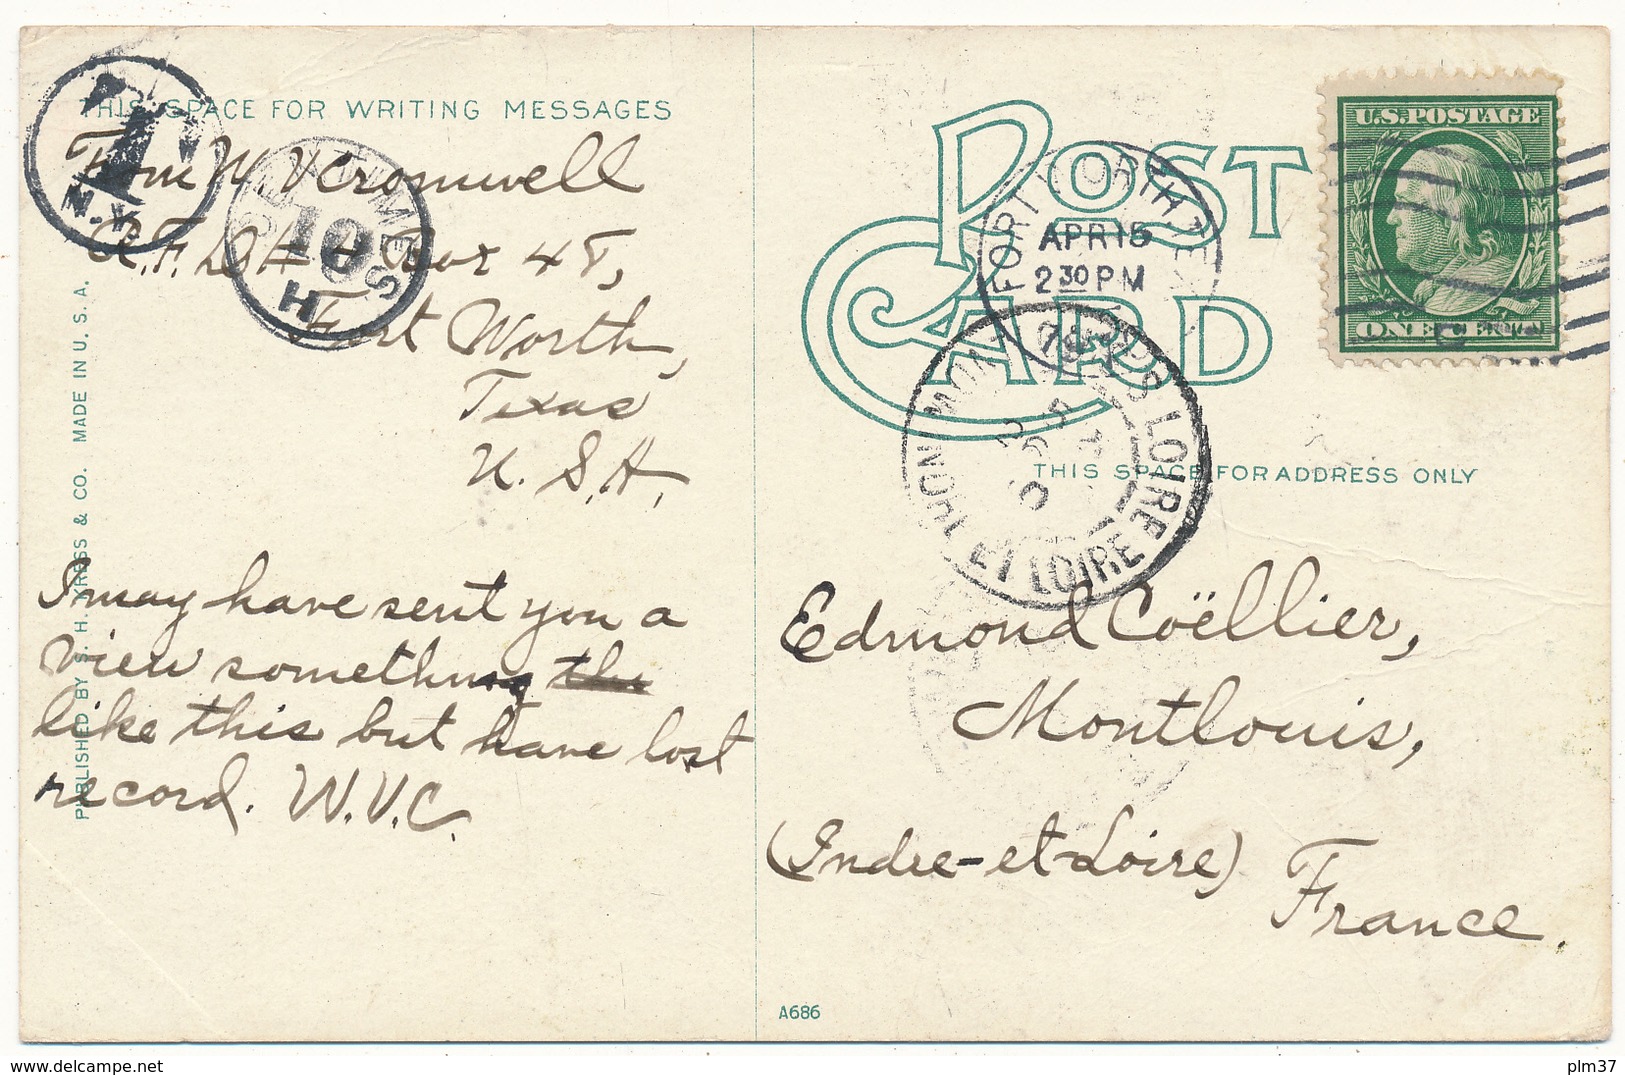 THIS SPACE FOR WRITING MESSAGES
From W. V. Cromwell
R.F.D. # 4 Box 48,
Fort Worth,
Texas
U. S. A.
I may have sent you a
view something the
like this but have lost
record. W.V.C.
PUBLISHED BY S. H. KRESS & CO. MADE IN U. S. A.
1
N.Y.
CENTIMES
10
U S
H
POST
CARD
FORT WORTH TEX
APR 15
2 30 PM
U.S. POSTAGE
ONE CENT
MONTLOUIS S LOIRE
INDRE ET LOIRE
THIS SPACE FOR ADDRESS ONLY
Edmond Coëllier,
Montlouis,
(Indre-et-Loire)
France.
A686
delcampe.net
plm37